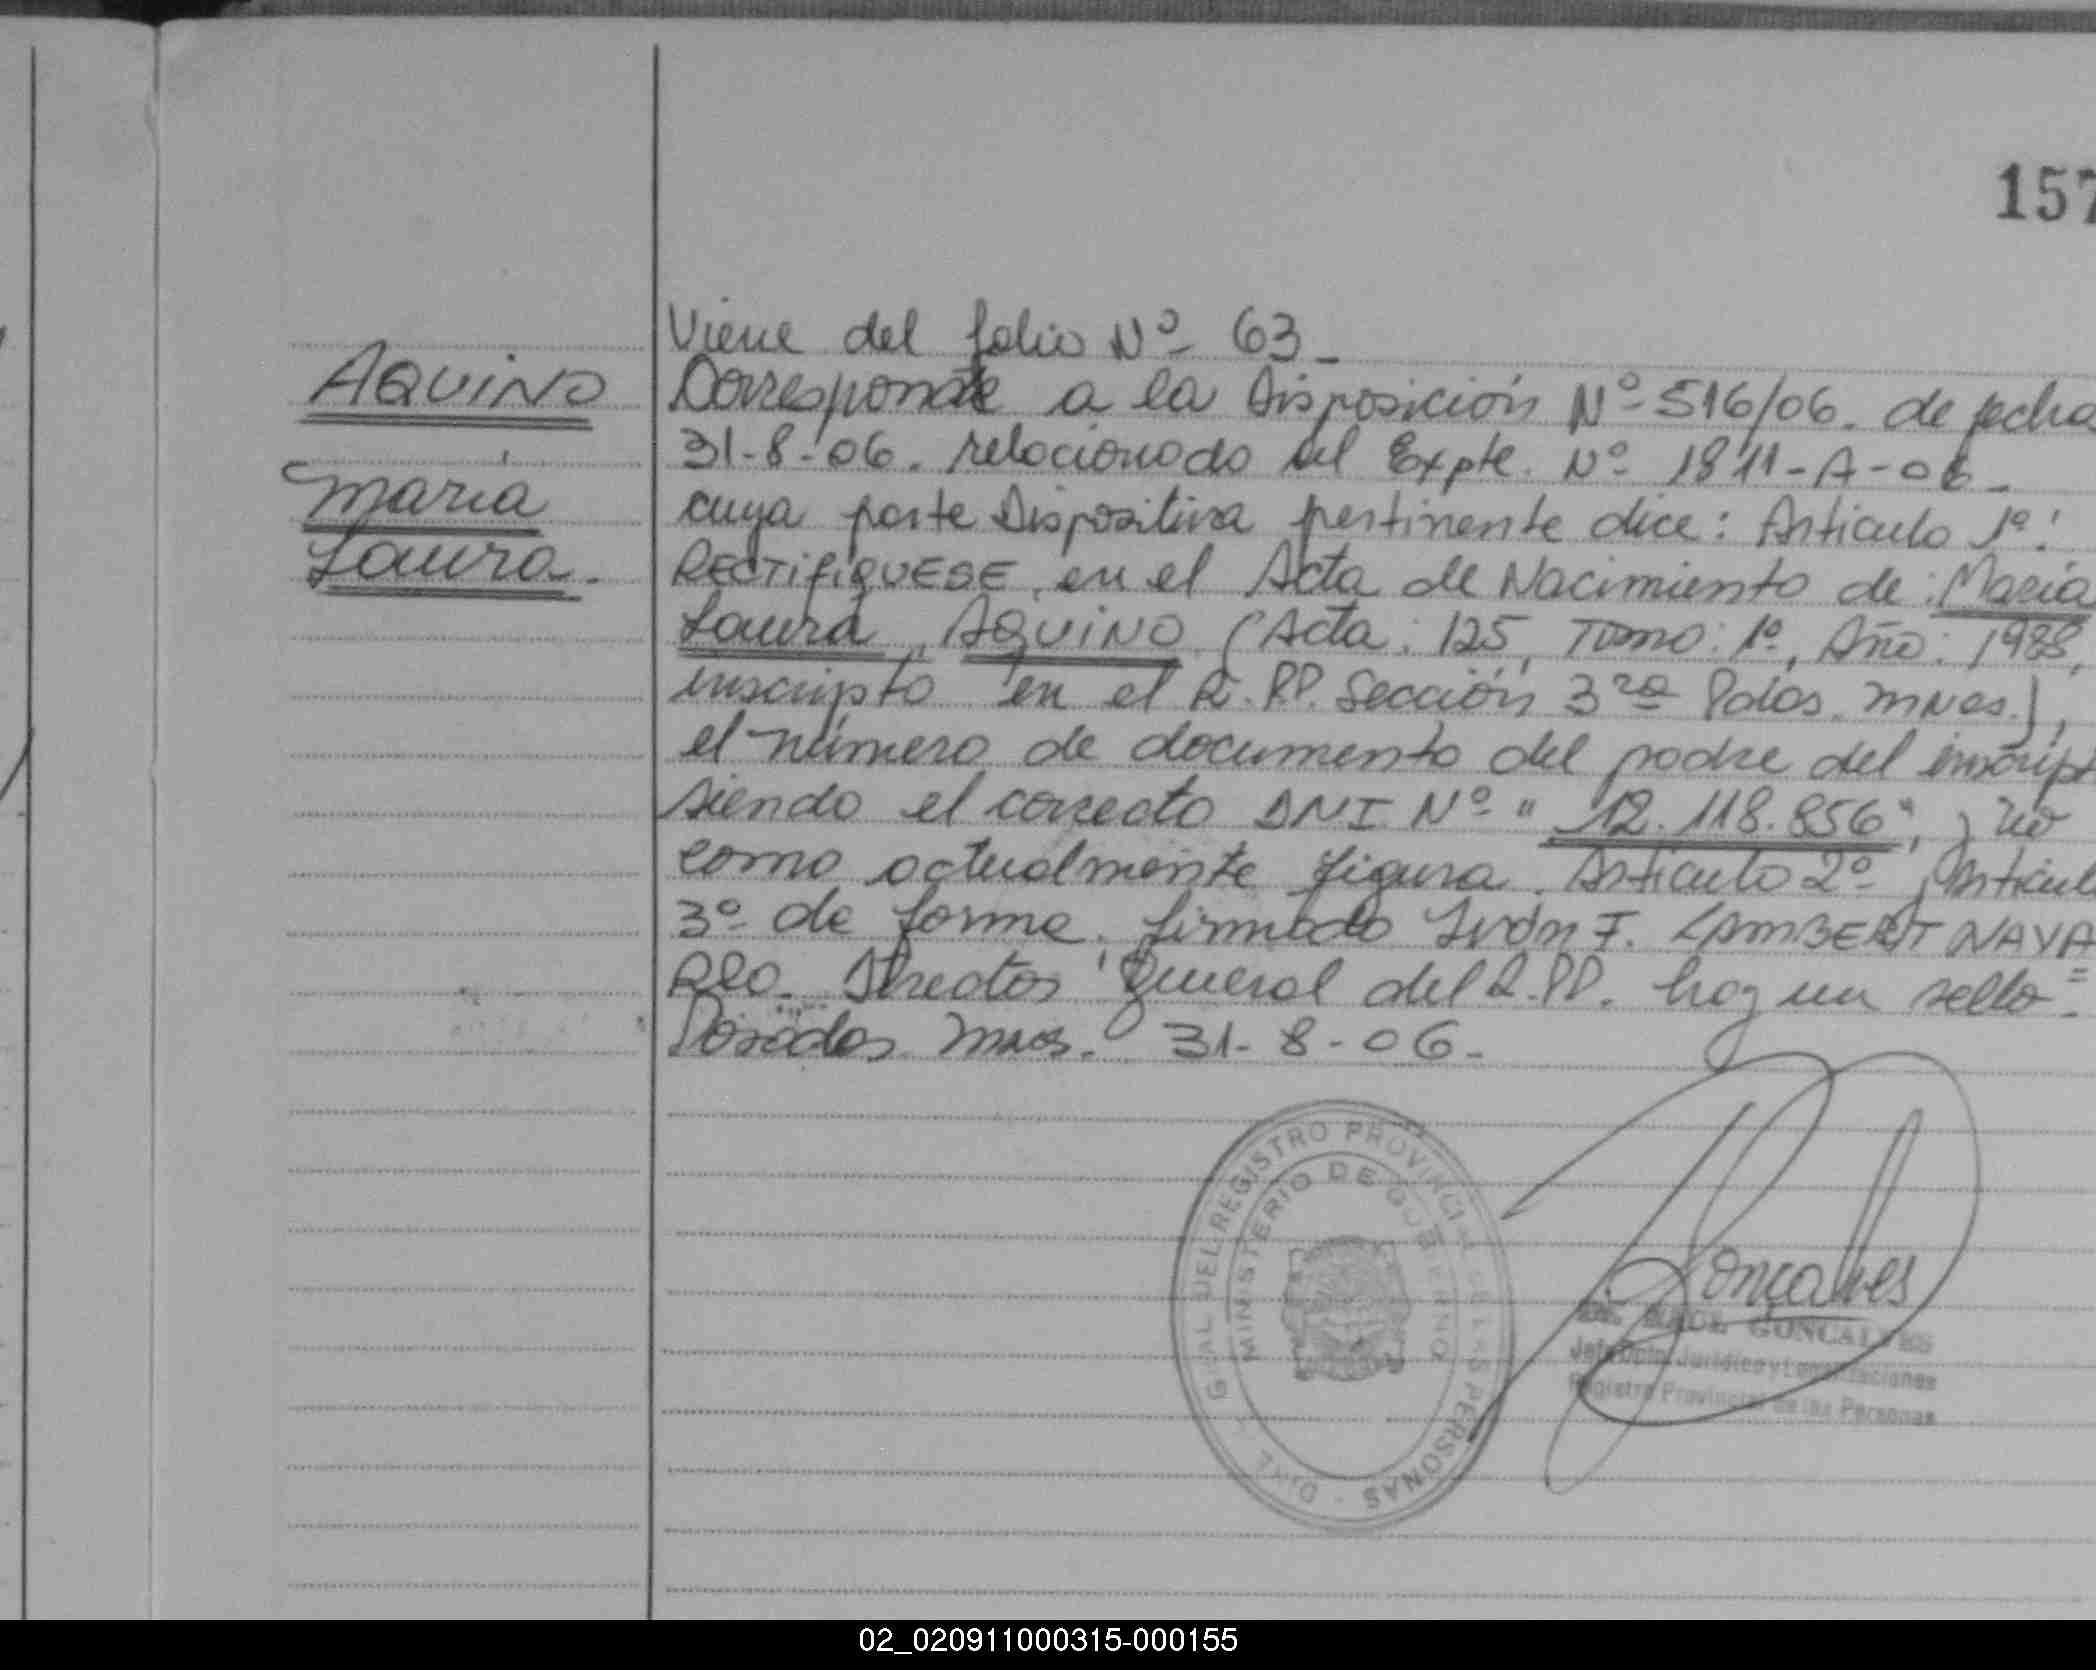 157
Viene del folio Nº 63_
AQUINO
María
Laura.
Corresponde a la Disposición Nº 516/06. de fecha
31-8-06. relacionado al Expte. Nº 1811-A-06_
cuya parte Dispositiva pertinente dice: Artículo 1º:
RECTIFIQUESE, en el Acta de Nacimiento de: María
Laura, AQUINO (Acta: 125, Tomo: 1º, Año: 1988,
inscripto en el R.P.P. Sección 3ra Pdas. Mnes.),
el número de documento del padre del inscript
siendo el correcto DNI Nº "12.118.856", y no
como actualmente figura. Artículo 2º, Articul
3º de forma. firmado Iván F. LAMBERT NAVA
RRO. Director General del R.PP. hay un sello=
Posadas Mnes. 31-8-06.-
DIR. GRAL DEL REGISTRO PROVINCIAL DE LAS PERSONAS
MINISTERIO DE GOBIERNO
Gonçalves
GONCALVES
Jefe Dpto. Jurídico y Legalizaciones
Registro Provincial de las Personas
02_020911000315-000155